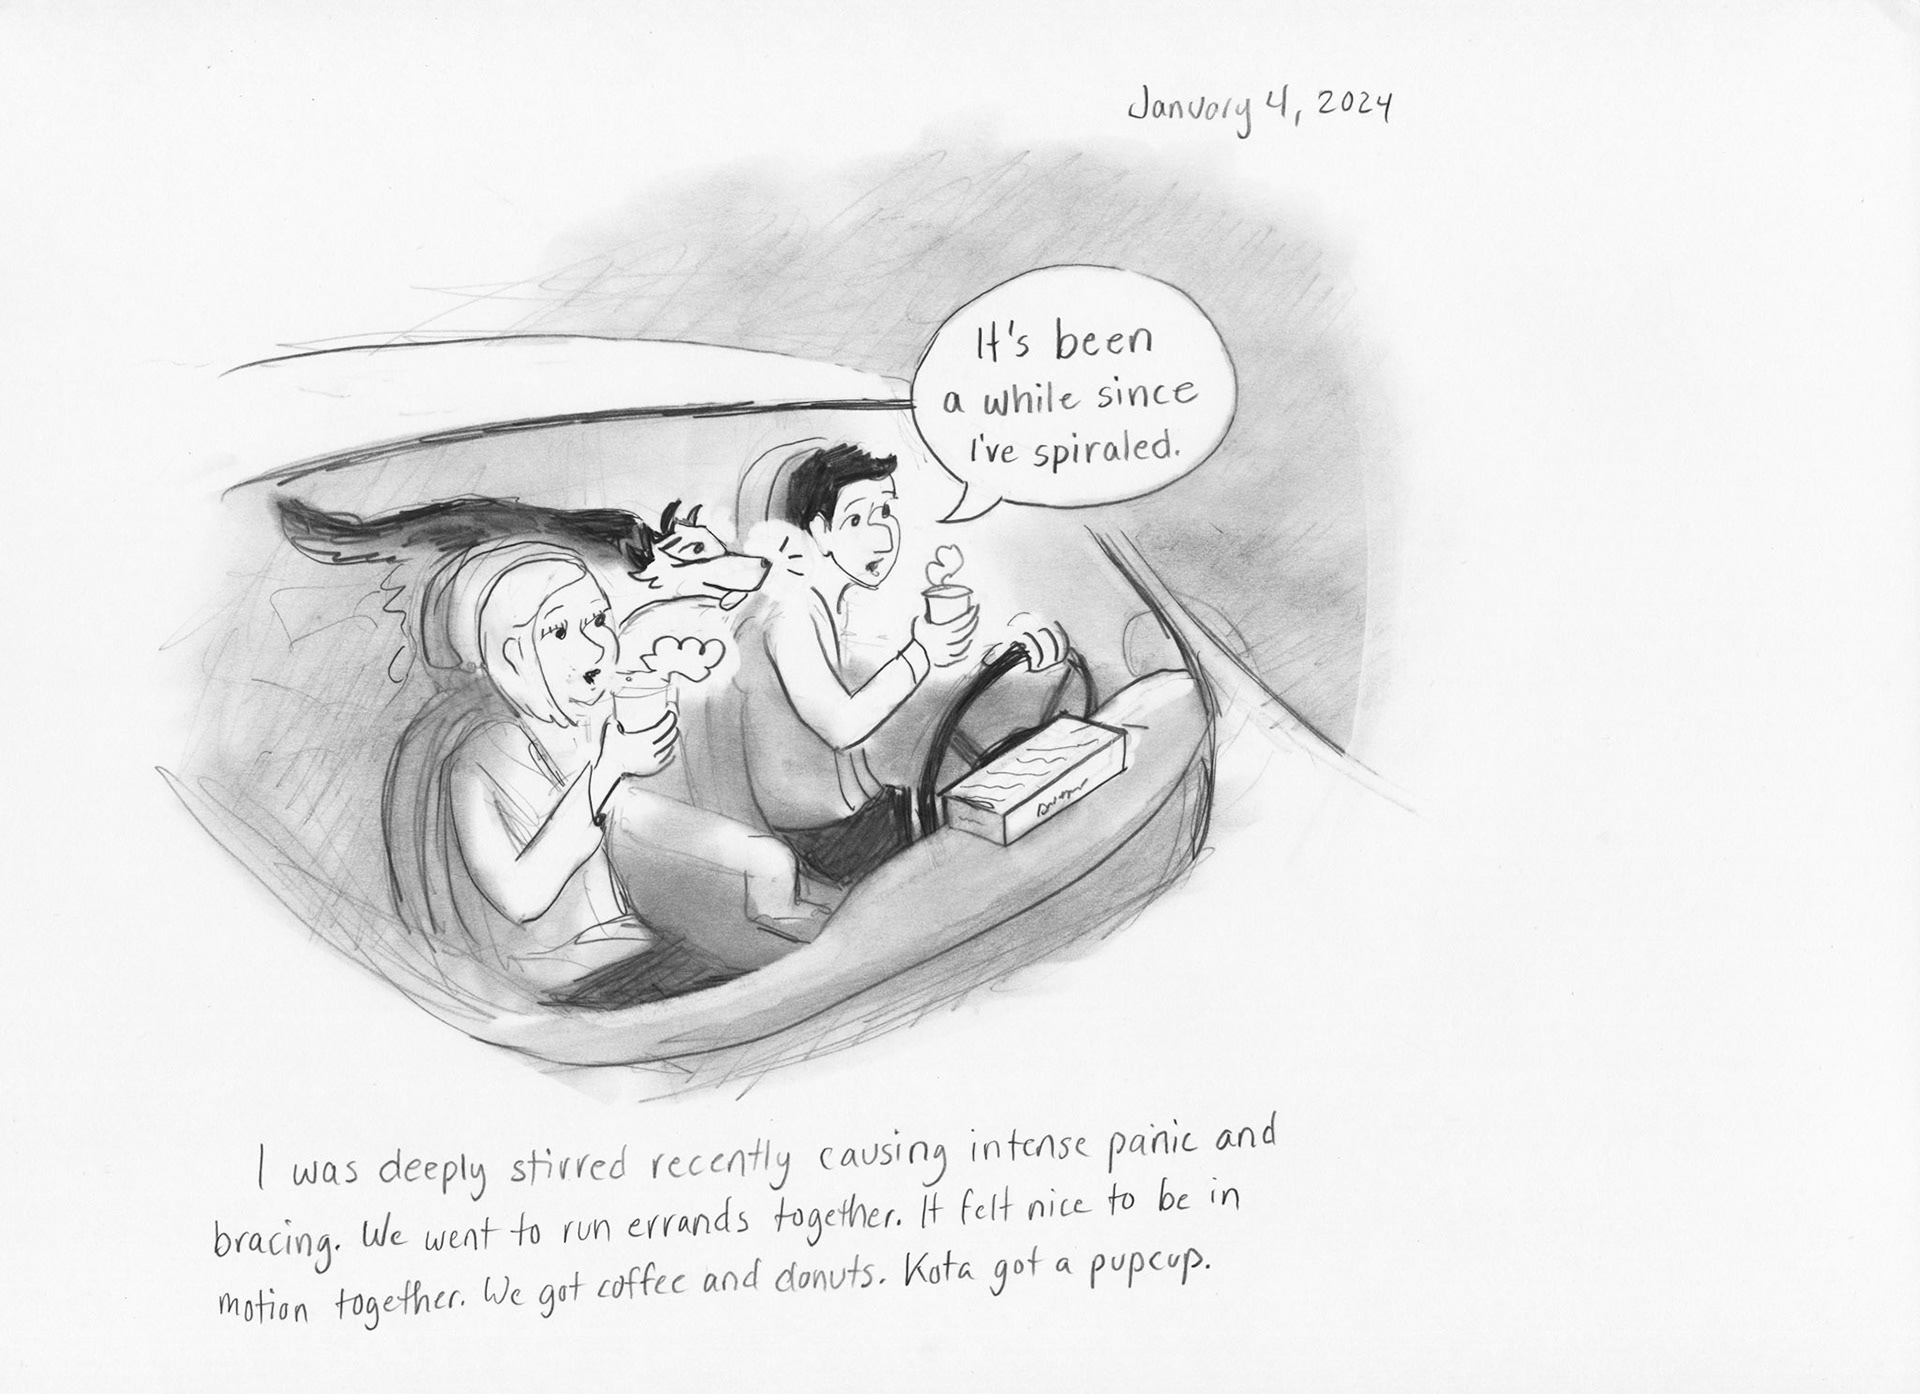 January 4, 2024
It's been
a while since
I've spiraled.
I was deeply stirred recently causing intense panic and
bracing. We went to run errands together. It felt nice to be in
motion together. We got coffee and donuts. Kota got a pupcup.